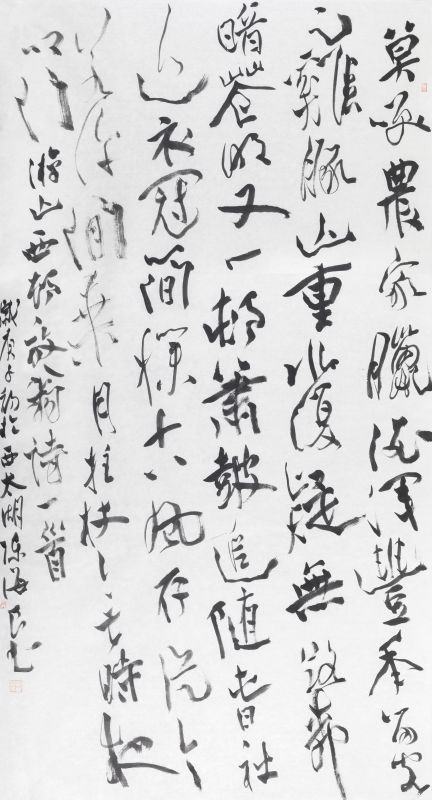 莫咲農家臘酒渾豐年留客
足雞豚山重水復疑無路柳
暗花明又一村簫鼓追隨春社
近衣冠簡樸古風存從今
若許閒乘月拄杖無時夜
叩門 游山西村放翁詩一首
歲庚子初於西太湖陳海良書